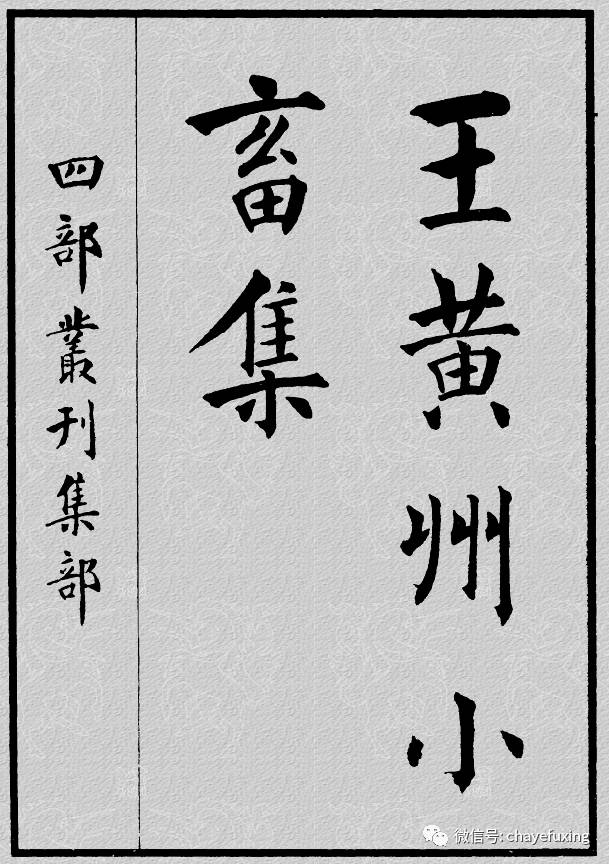 王黄州小
畜集
四部叢刊集部
微信号: chayefuxing